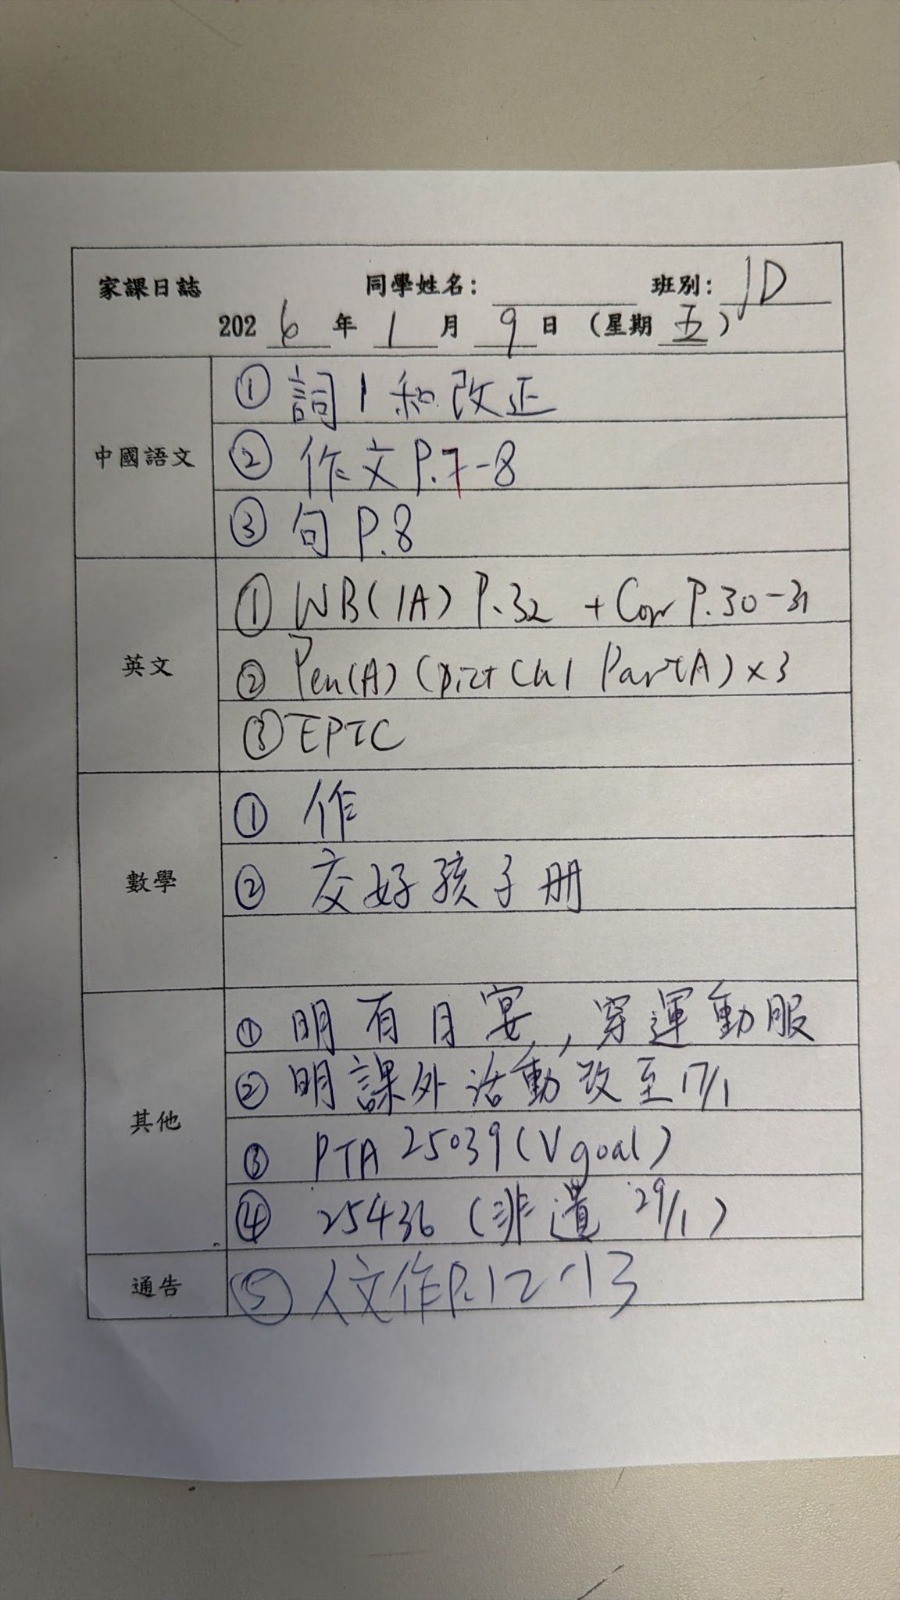 家課日誌 同學姓名: 班別: 1D
2026年1月9日 (星期五)
中國語文
① 詞1和改正
② 作文P.7-8
③ 句P.8
英文
① WB(1A) P.32 + Corr P.30-31
② Pen(A) (Dict Ch1 Part A) x3
③ EPTC
數學
① 作
② 交好孩子冊
其他
① 明有月宴,穿運動服
② 明課外活動改至17/1
③ PTA 25039 (Vgoal)
④ 25436 (非遺 29/1)
通告
⑤ 人文作P.12-13